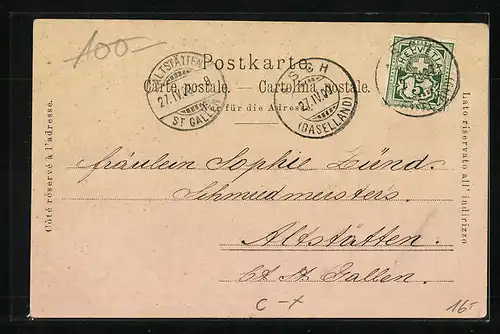 100-
Postkarte.
Carte postale. — Cartolina postale.
Nur für die Adresse.
Côté réservé à l'adresse.
Lato riservato all' indirizzo
ALTSTÄTTEN
27.IV.
ST GALLEN
27.IV.
(BASELLAND)
HELVETIA
5
Fräulein Sophie Zünd.
Schmiedmeisters.
Altstätten.
Ct. St. Gallen.
C-x
16.-